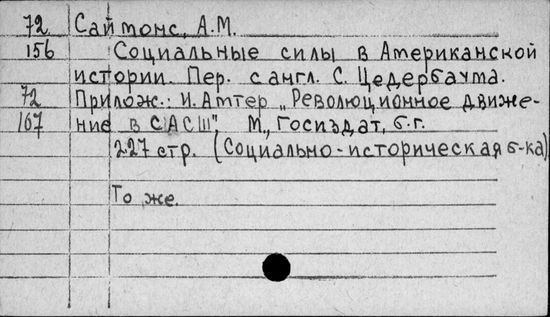 72 Саймонс, А.М.
156 Социальные силы в Американской
истории. Пер. с англ. С. Цедербаума.
72 Прилож.: И. Амтер „Революционное движе-
167 ние в САСШ", М., Госиздат, б.г.
227 стр. (Социально-историческая б-ка)
То же.